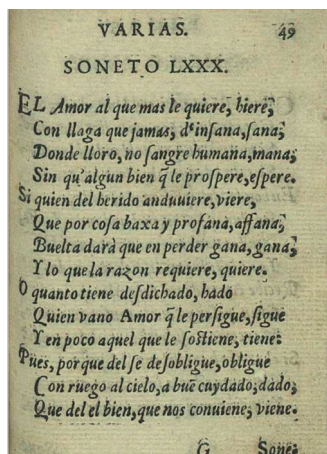 VARIAS. 49
SONETO LXXX.
EL Amor al que mas le quiere, hiere;
Con llaga que jamas, d'insana, sana;
Donde lloro, no sangre humana, mana;
Sin qu'algun bien q̃ le prospere, espere.
Si quien del herido anduuiere, viere,
Que por cosa baxa y profana, affana;
Buelta darà que en perder gana, gana;
Y lo que la razon requiere, quiere.
O quanto tiene desdichado, hado
Quien vano Amor q̃ le persigue, sigue
Y en poco aquel que le sostiene, tiene:
Pues, porque del se desobligue, obligue
Con ruego al cielo, a buẽ cuydado; dado;
Que del el bien, que nos conuiene; viene.
G Sone;